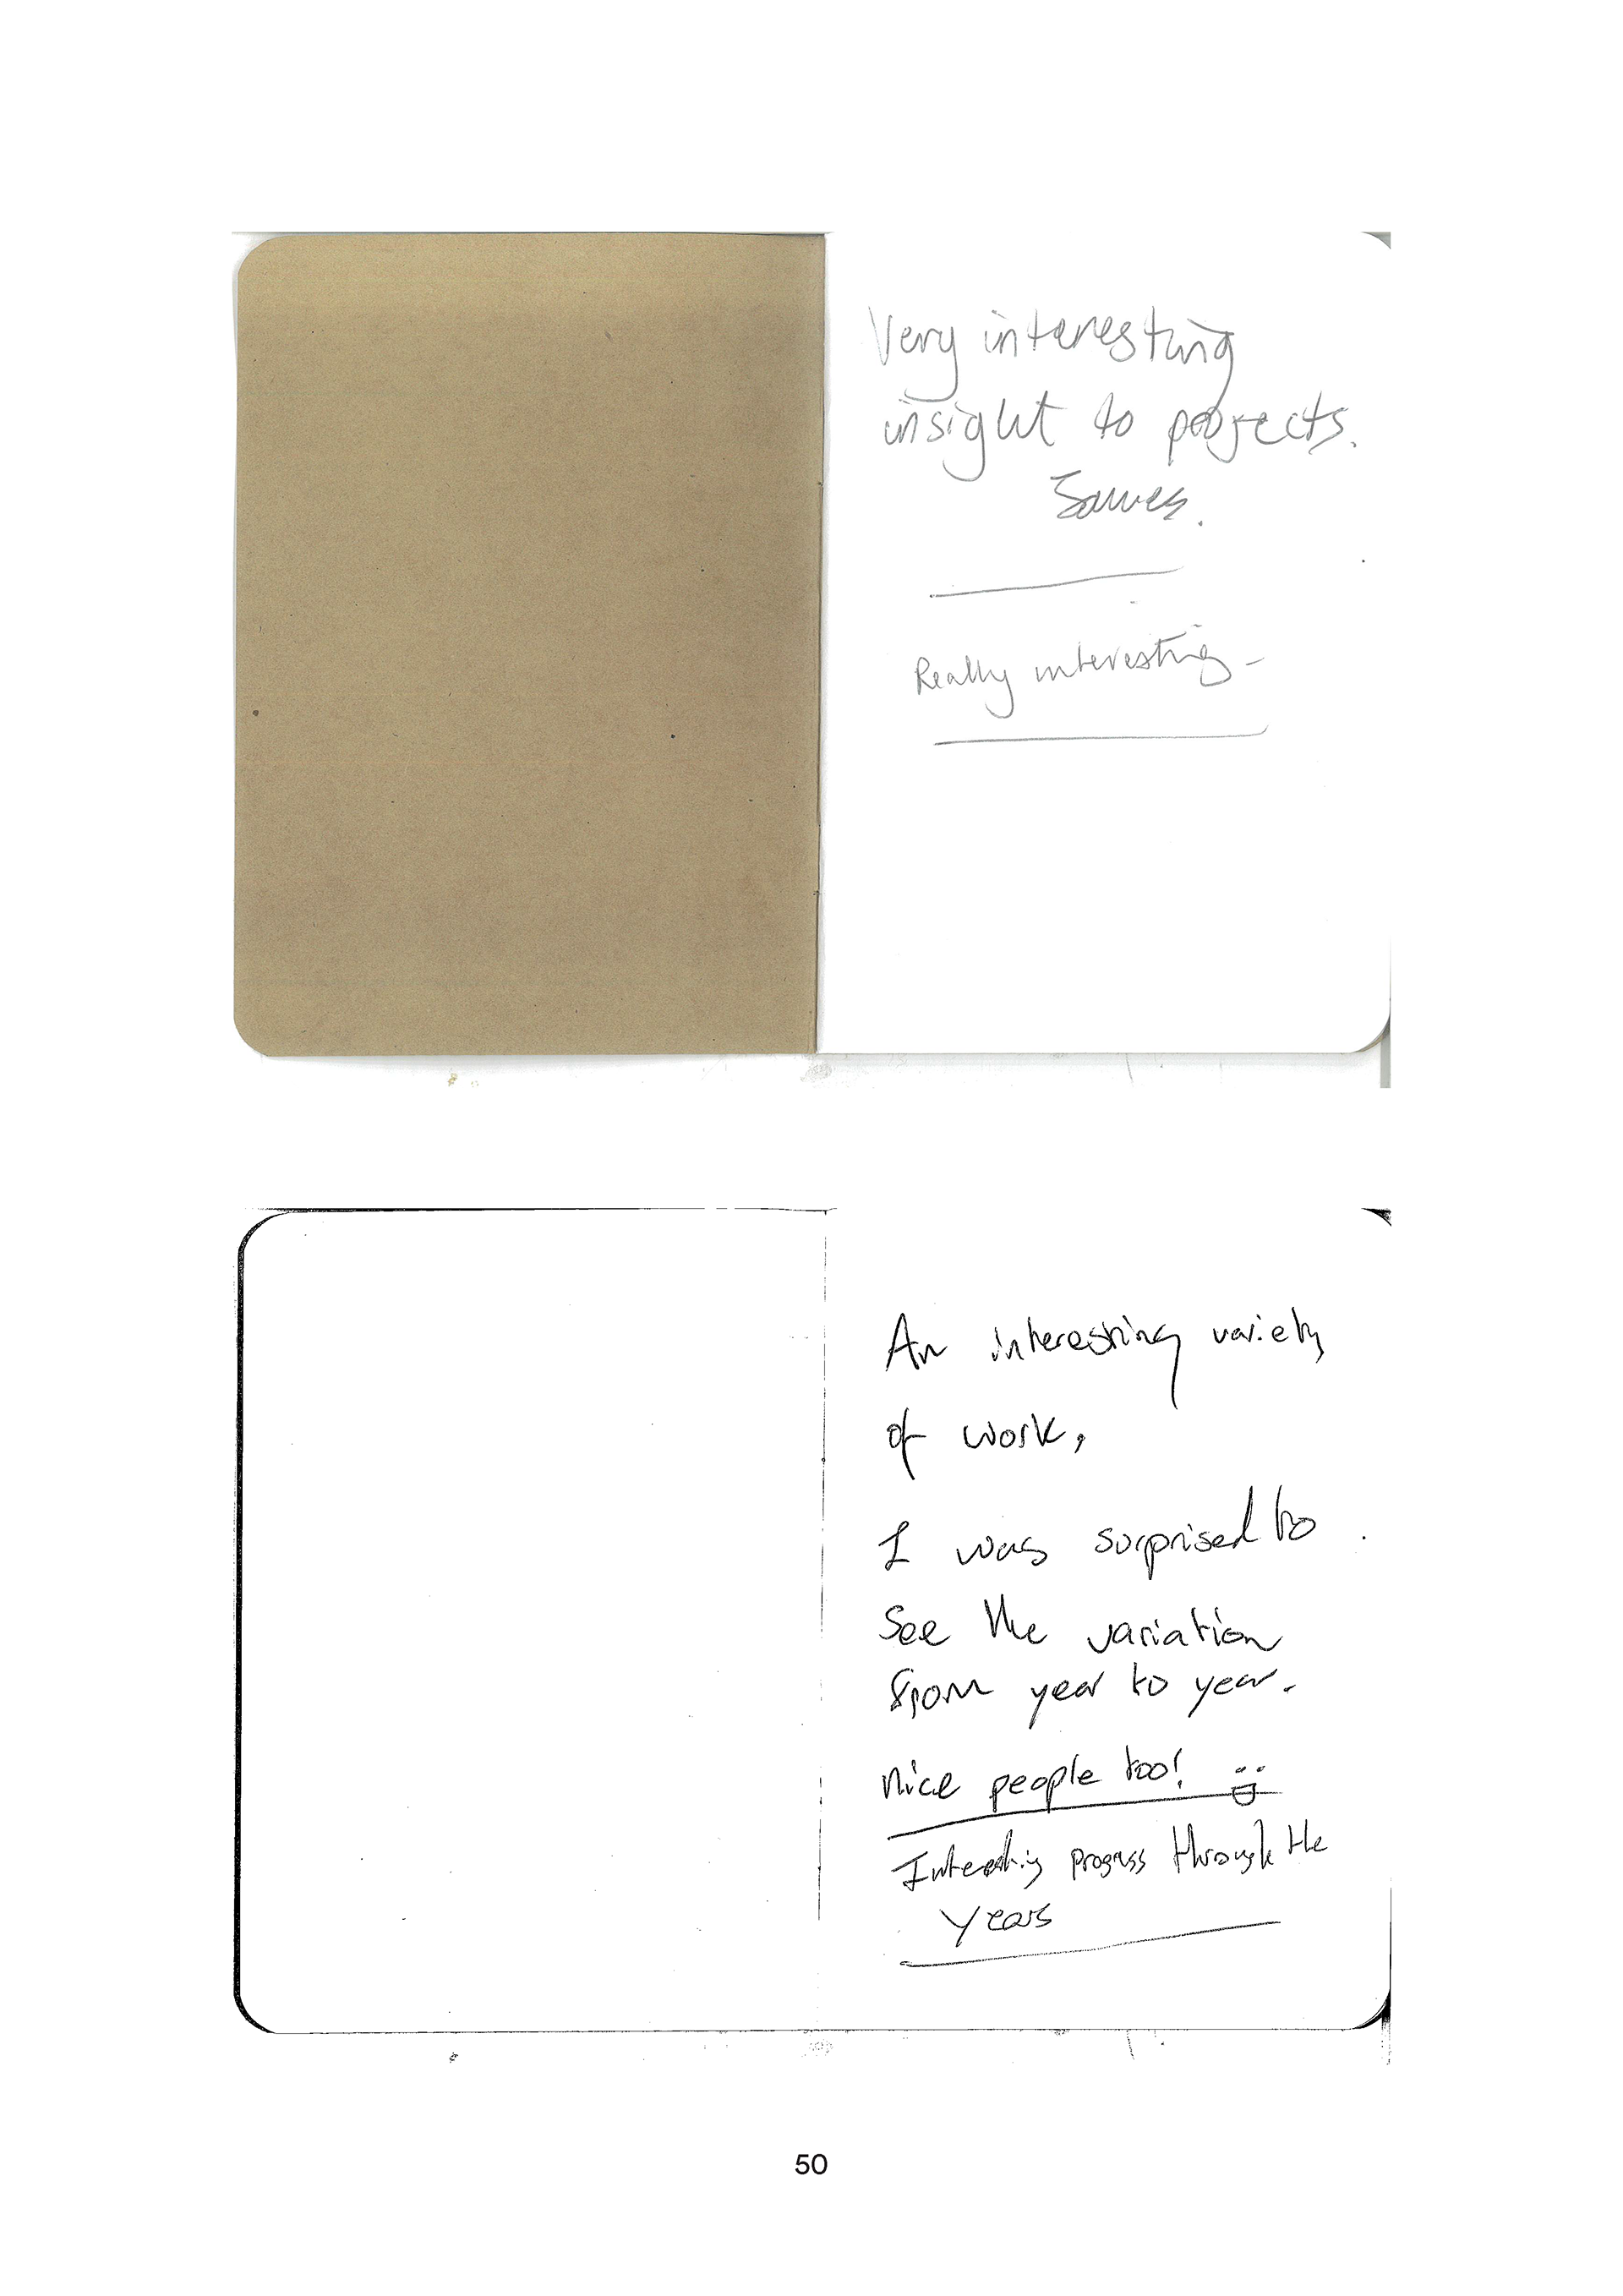 Very interesting
insight to projects.
James.
Really interesting -
An interesting variety
of work,
I was surprised to
see the variation
from year to year.
nice people too!
Interesting progress through the
years
50